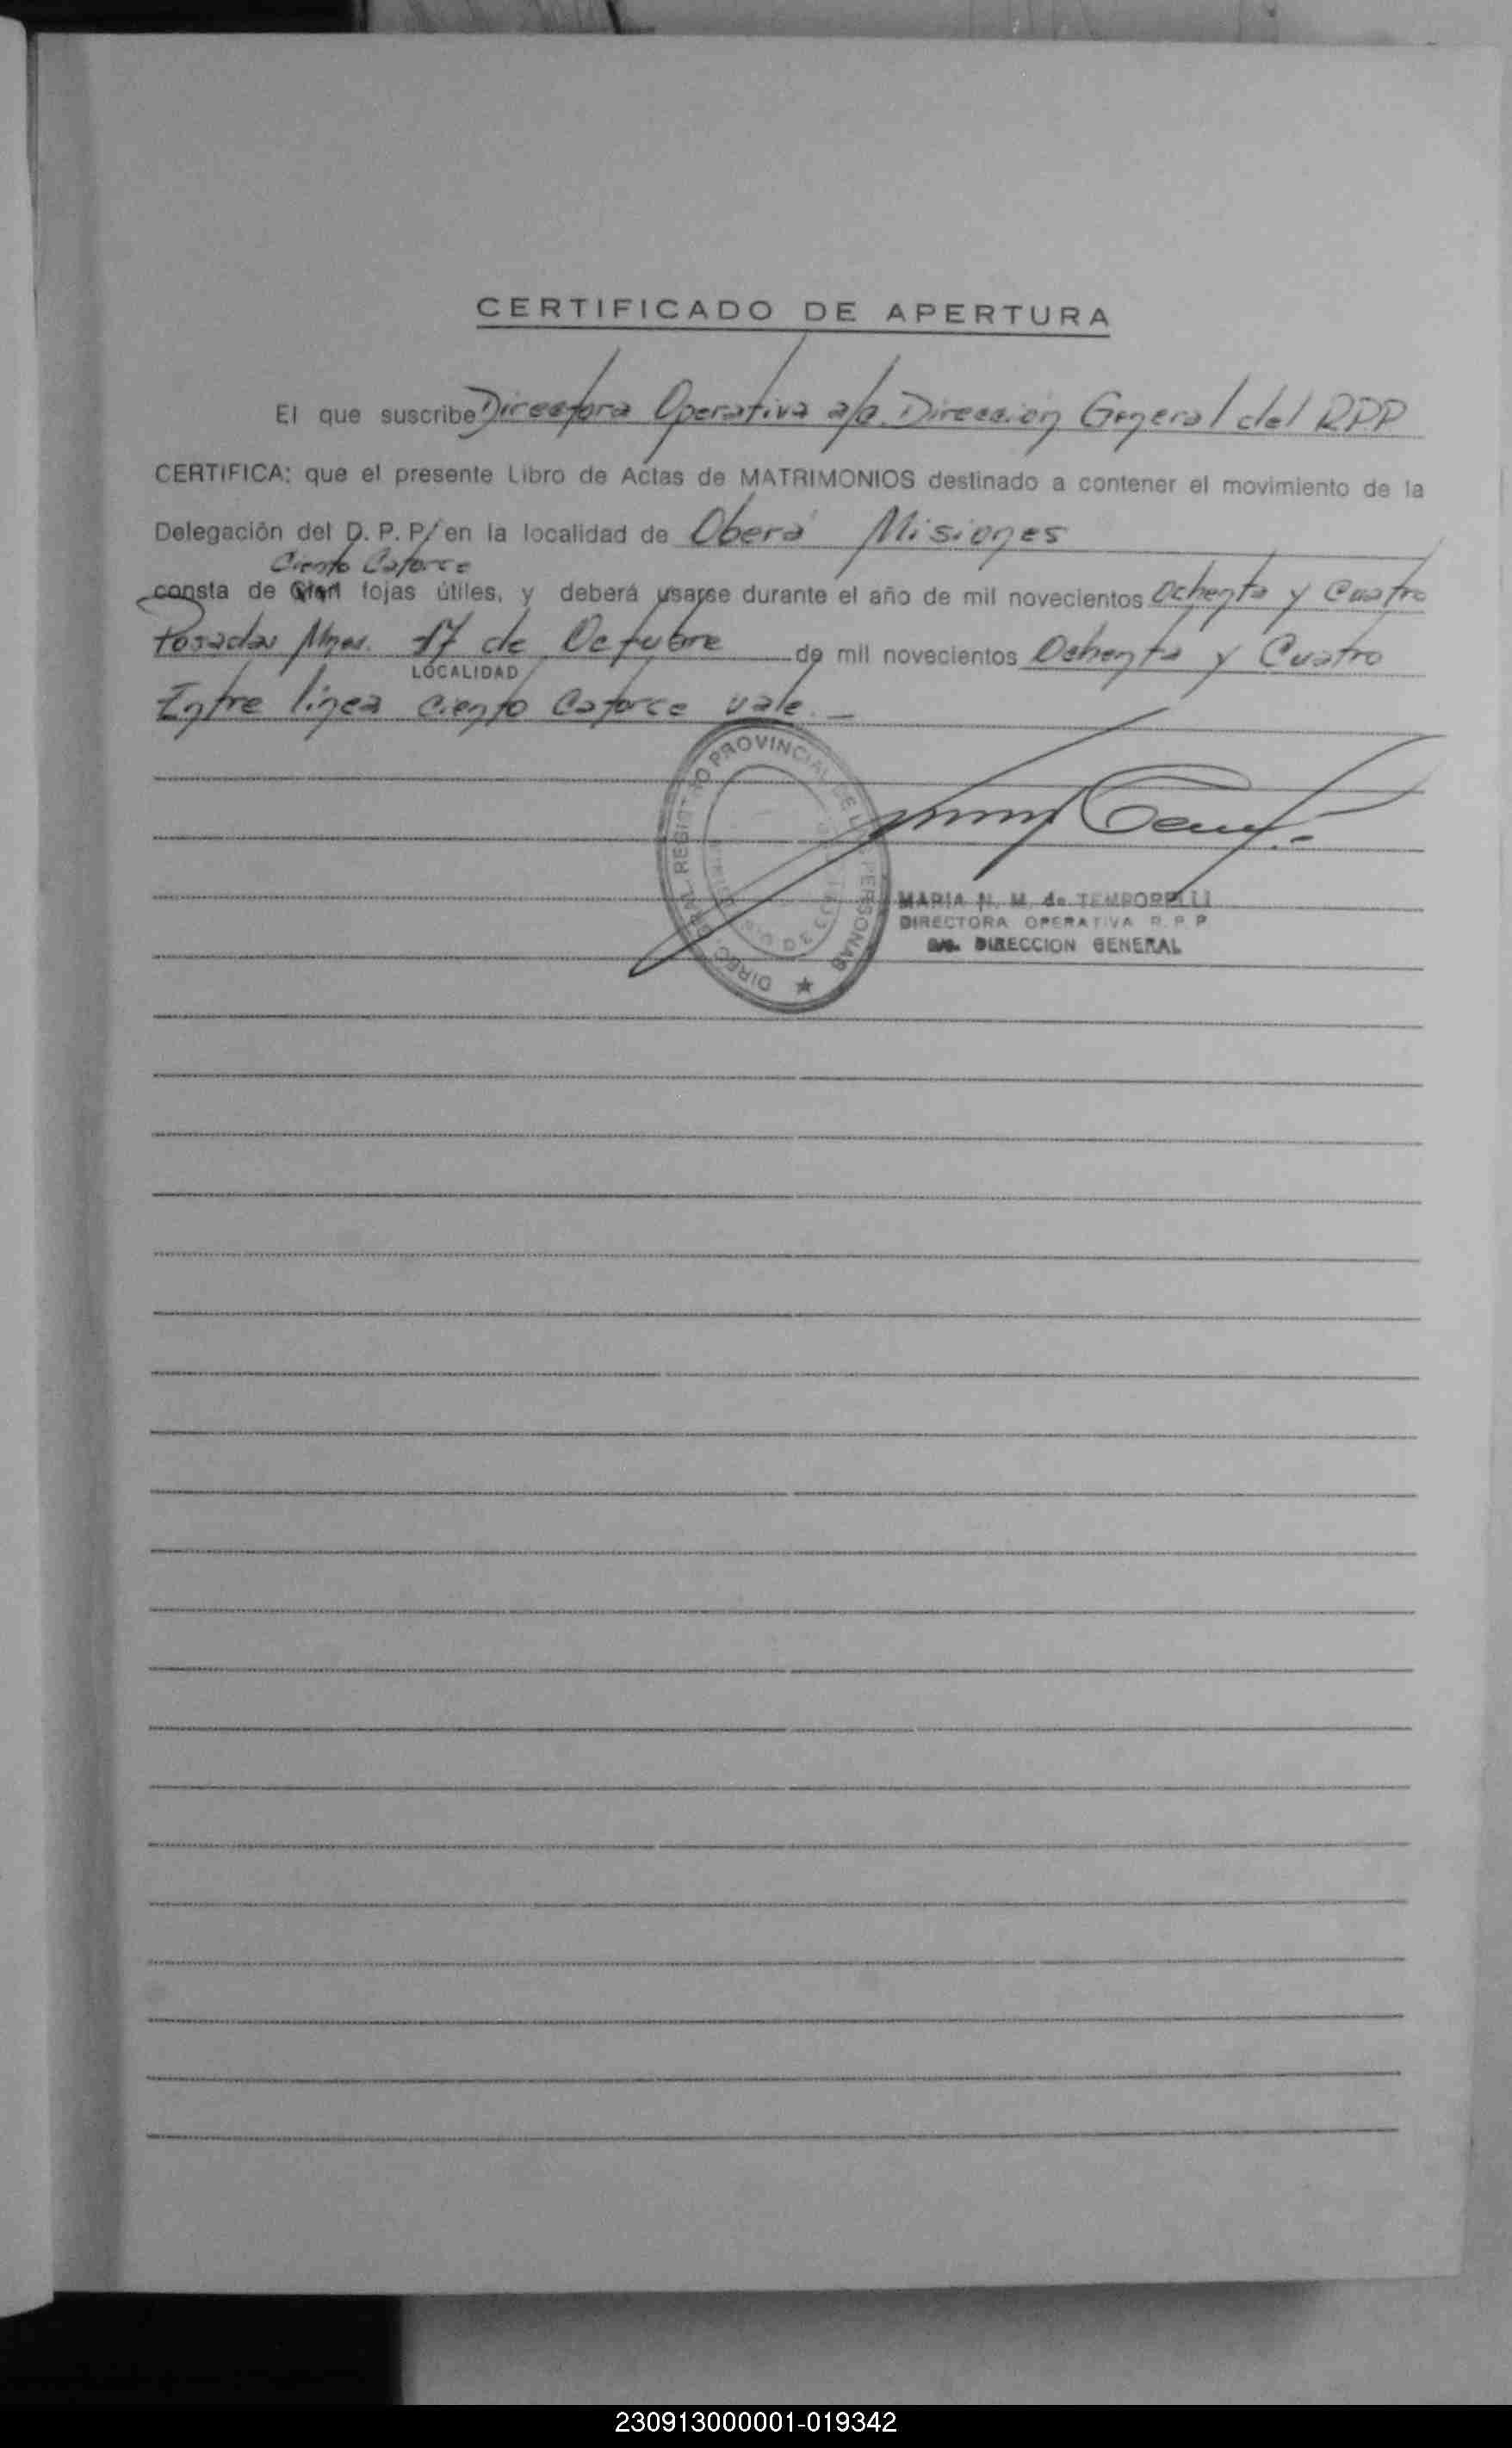 CERTIFICADO DE APERTURA
El que suscribe Directora Operativa a/c. Dirección General del RPP
CERTIFICA: que el presente Libro de Actas de MATRIMONIOS destinado a contener el movimiento de la
Delegación del D. P. P. en la localidad de Oberá Misiones
Ciento Catorce
consta de Cien fojas útiles, y deberá usarse durante el año de mil novecientos Ochenta y Cuatro
Posadas Mnes. 17 de Octubre de mil novecientos Ochenta y Cuatro
LOCALIDAD
Entre línea ciento catorce vale.—
REGISTRO PROVINCIAL DE LAS PERSONAS
MARIA N. M. de TEMPORELLI
DIRECTORA OPERATIVA R. P. P
a/c. DIRECCION GENERAL
230913000001-019342